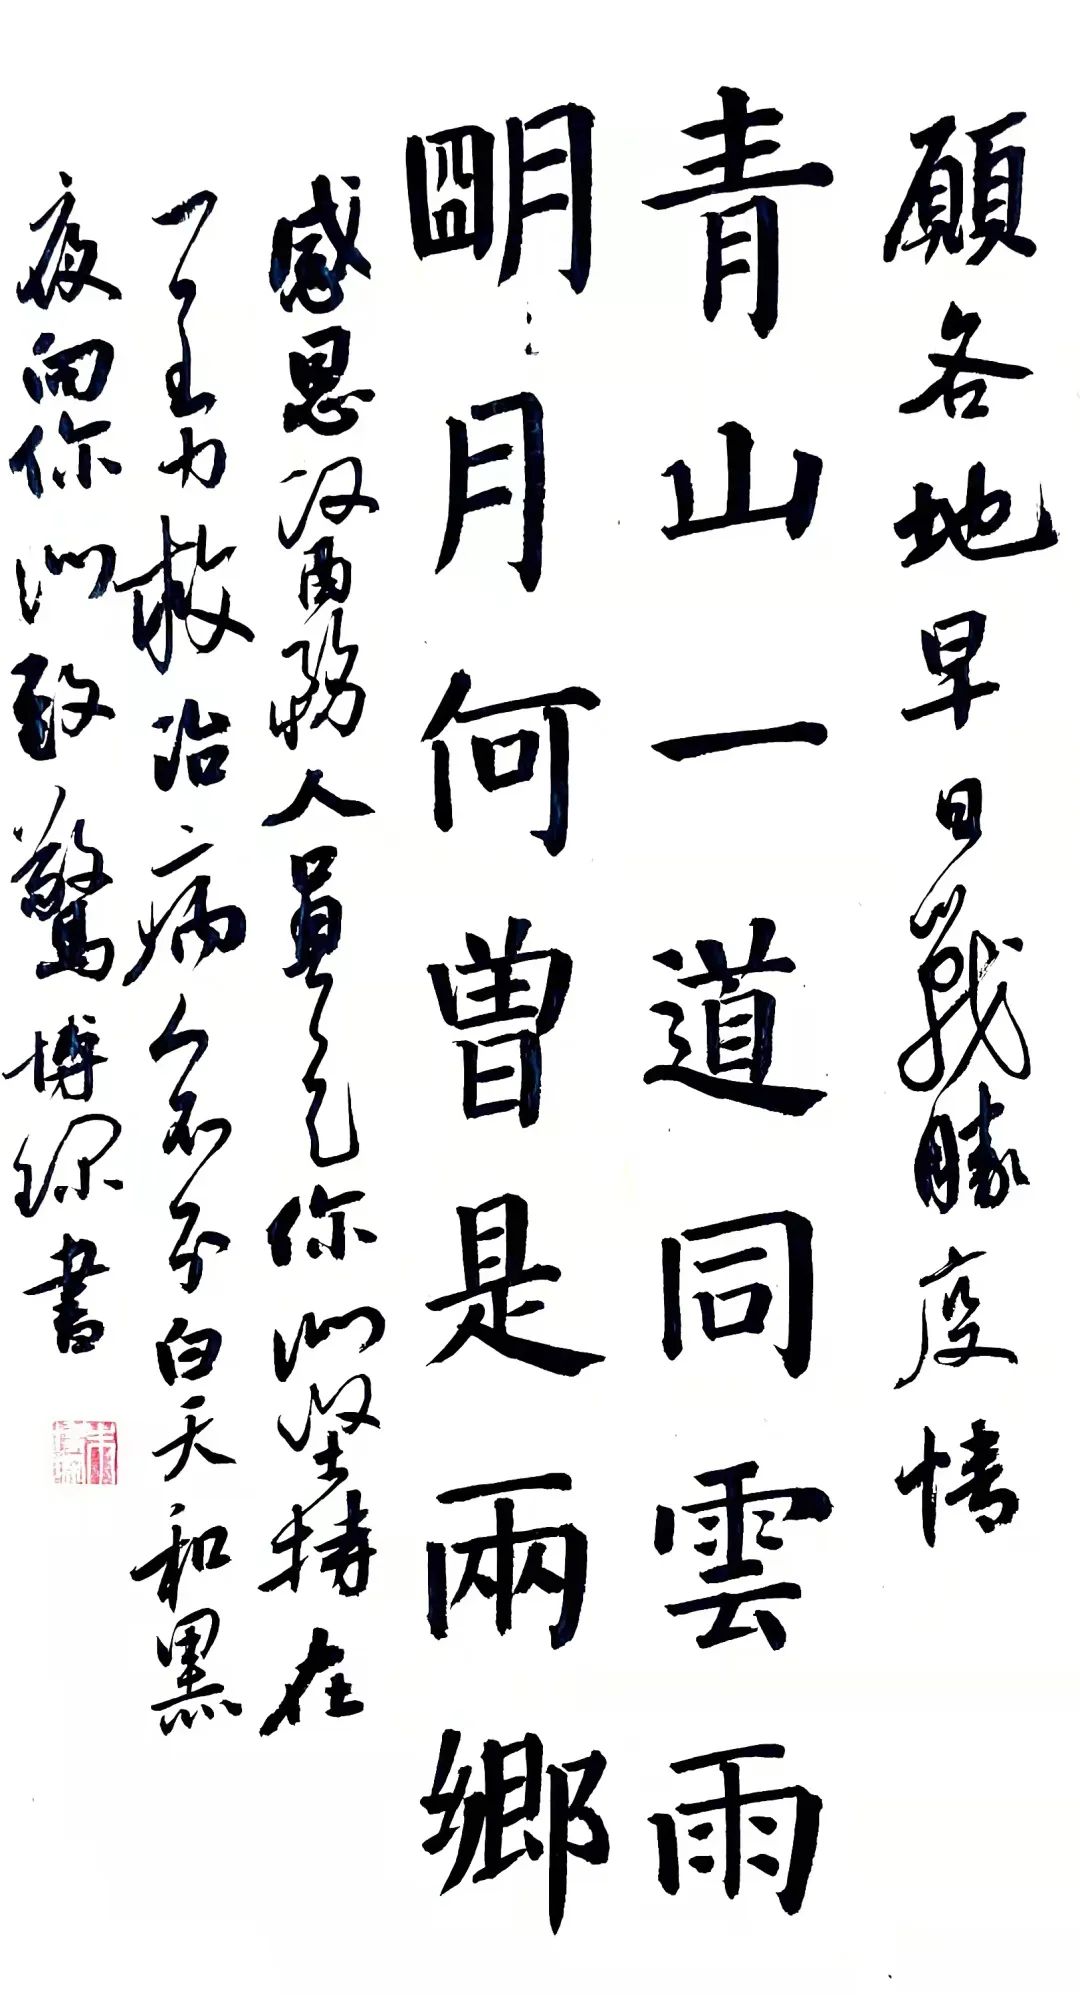 願各地早日戰勝疫情
青山一道同雲雨
朙月何曾是兩鄉
感恩醫務人員是你们堅持在
一全力救治病人不分白天和黑
夜向你们致驚博琛書